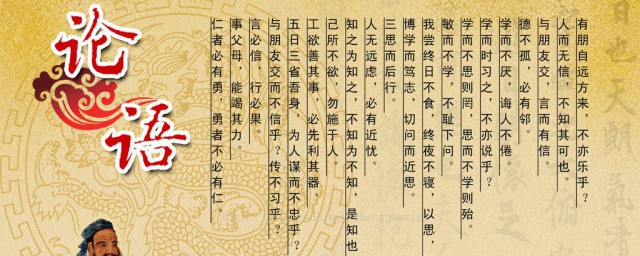 论语
有朋自远方来，不亦乐乎？
人而无信，不知其可也。
与朋友交，言而有信。
德不孤，必有邻。
学而不厌，诲人不倦。
学而时习之，不亦说乎？
学而不思则罔，思而不学则殆。
敏而不学，不耻下问。
我尝终日不食，终夜不寝，以思，
博学而笃志，切问而近思。
三思而后行。
人无远虑，必有近忧。
知之为知之，不知为不知，是知也
己所不欲，勿施于人。
工欲善其事，必先利其器。
五日三省吾身，为人谋而不忠乎？
与朋友交而不信乎？传不习乎？
言必信，行必果。
事父母，能竭其力。
仁者必有勇，勇者不必有仁。